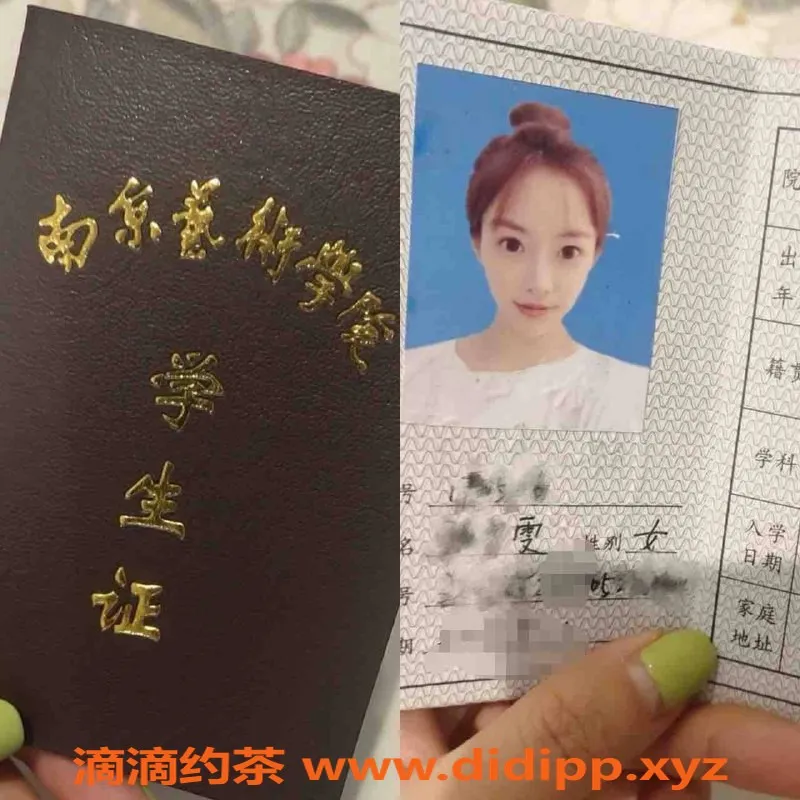 南京藝術學院
学
生
证
号
名 雯 性别 女
号 05.
期
院
出
年
籍贯
学科
入学
日期
家庭
地址
滴滴约茶 www.didipp.xyz